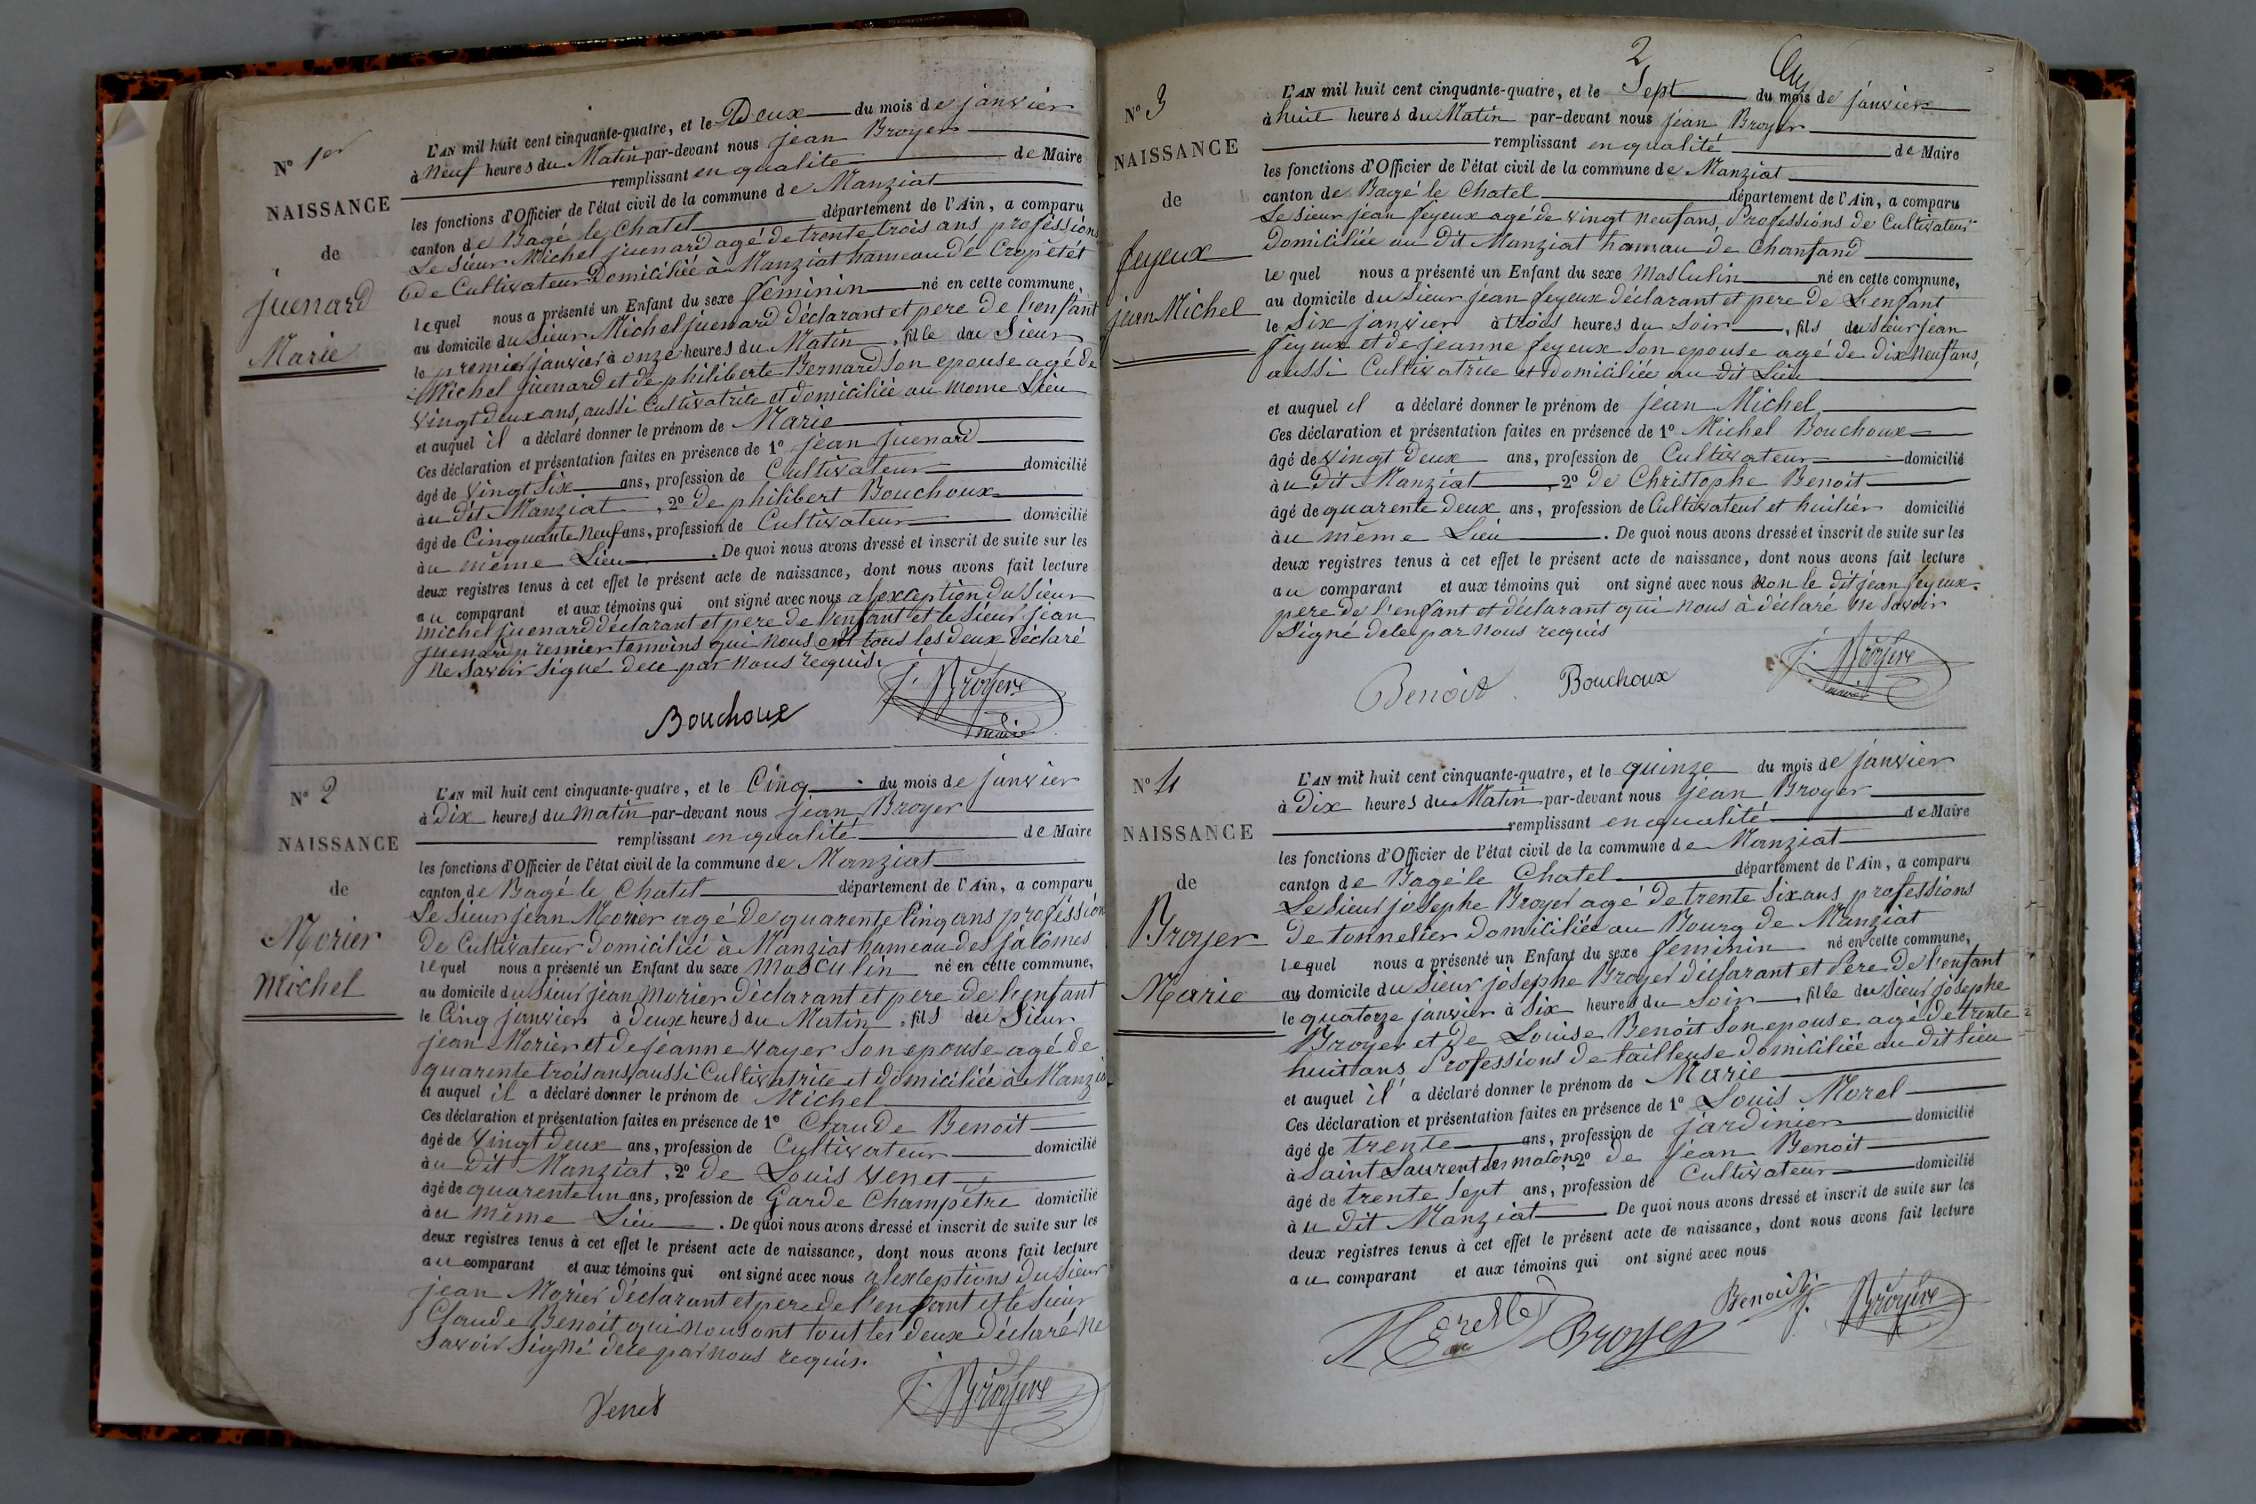 N° 1er
NAISSANCE
de
juenard
Marie
L'AN mil huit cent cinquante-quatre, et le Deux du mois de janvier
à Neuf heures du Matin par-devant nous jean Broyer
remplissant en qualité de Maire
les fonctions d'Officier de l'état civil de la commune de Manziat
canton de Bagé le Chatel département de l'Ain, a comparu
Le Sieur Michel juenard agé de trente trois ans professions
de Cultivateur Domiciliée à Manziat hameau de Cropetet
lequel nous a présenté un Enfant du sexe feminin né en cette commune,
au domicile du Sieur Michel juenard déclarant et pere de l'enfant
le premier janvier à onze heures du Matin, fille du Sieur
Michel juenard et de philiberte Bernard Son epouse agé de
vingt deux ans, aussi Cultivatrice et domiciliée au meme Lieu
et auquel il a déclaré donner le prénom de Marie
Ces déclaration et présentation faites en présence de 1° jean juenard
âgé de vingt Six ans, profession de Cultivateur domicilié
à au dit Manziat, 2° De philibert Bouchoux
âgé de Cinquante Neuf ans, profession de Cultivateur domicilié
à au même Lieu. De quoi nous avons dressé et inscrit de suite sur les
deux registres tenus à cet effet le présent acte de naissance, dont nous avons fait lecture
au comparant et aux témoins qui ont signé avec nous a l'exception du Sieur
Michel juenard déclarant et pere de l'enfant et le Sieur jean
juenard premier temoins qui Nous ont tous les deux déclaré
Ne Savoir Signé de ce par Nous requis.
Bouchoux
j. Broyere
maire
N° 2
NAISSANCE
de
Morier
Michel
L'AN mil huit cent cinquante-quatre, et le Cinq du mois de janvier
à Dix heures du Matin par-devant nous jean Broyer
remplissant en qualité de Maire
les fonctions d'Officier de l'état civil de la commune de Manziat
canton de Bagé le Chatel département de l'Ain, a comparu
Le Sieur jean Morier agé De quarente Cinq ans profession
De Cultivateur domiciliée à Manziat hameau des jalômes
lequel nous a présenté un Enfant du sexe Masculin né en cette commune,
au domicile du Sieur jean Morier Déclarant et pere de l'enfant
le Cinq janvier à Deux heures du Matin, fils du Sieur
jean Morier et de jeanne vayer Son epouse agé de
quarente trois ans, aussi Cultivatrice et domiciliée à Manzia
et auquel il a déclaré donner le prénom de Michel
Ces déclaration et présentation faites en présence de 1° Claude Benoit
âgé de vingt deux ans, profession de Cultivateur domicilié
à au Dit Manziat, 2° De Louis venet
âgé de quarente un ans, profession de Garde Champêtre domicilié
à au même Lieu. De quoi nous avons dressé et inscrit de suite sur les
deux registres tenus à cet effet le présent acte de naissance, dont nous avons fait lecture
au comparant et aux témoins qui ont signé avec nous a l'exceptions Du Sieur
jean Morier Déclarant et pere de l'enfant et le Sieur
Claude Benoit qui Nous ont tout les deux Déclaré Ne
Savoir Signé de ce par Nous requis.
Venet
j. Broyere
2
N° 3
NAISSANCE
de
feyeux
jean Michel
L'AN mil huit cent cinquante-quatre, et le Sept du mois de janvier
à huit heures du Matin par-devant nous jean Broyer
remplissant en qualité de Maire
les fonctions d'Officier de l'état civil de la commune de Manziat
canton de Bagé le Chatel département de l'Ain, a comparu
Le Sieur jean feyeux agé de vingt Neuf ans, Professions de Cultivateur
Domiciliée au Dit Manziat hameau de Chanfand
lequel nous a présenté un Enfant du sexe Masculin né en cette commune,
au domicile du Sieur jean feyeux déclarant et pere de L'enfant
le Six janvier à trois heures du Soir, fils du Sieur jean
feyeux et de jeanne feyeux Son epouse agé de dix Neuf ans,
aussi Cultivatrice et domiciliée au dit Lieu
et auquel il a déclaré donner le prénom de jean Michel
Ces déclaration et présentation faites en présence de 1° Michel Bouchoux
âgé de vingt deux ans, profession de Cultivateur domicilié
à au Dit Manziat, 2° De Christophe Benoit
âgé de quarente deux ans, profession de Cultivateur et huilier domicilié
à au même Lieu. De quoi nous avons dressé et inscrit de suite sur les
deux registres tenus à cet effet le présent acte de naissance, dont nous avons fait lecture
au comparant et aux témoins qui ont signé avec nous Non le dit jean feyeux
pere de l'enfant et déclarant qui Nous à déclaré Ne Savoir
Signé de ce par Nous requis
Benoit
Bouchoux
j. Broyere
maire
N° 4
NAISSANCE
de
Broyer
Marie
L'AN mil huit cent cinquante-quatre, et le quinze du mois de janvier
à Dix heures du Matin par-devant nous jean Broyer
remplissant en qualité de Maire
les fonctions d'Officier de l'état civil de la commune de Manziat
canton de Bagé le Chatel département de l'Ain, a comparu
Le Sieur josephe Broyer agé de trente Six ans professions
De tonnelier domiciliée au Bourg de Manziat
lequel nous a présenté un Enfant du sexe feminin né en cette commune,
au domicile du Sieur josephe Broyer déclarant et Pere De l'enfant
le quatorze janvier à Six heures du Soir, fille du Sieur josephe
Broyer et De Louise Benoit Son epouse agé de trente
huit ans Professions de tailleuse domiciliée au dit lieu
et auquel il a déclaré donner le prénom de Marie
Ces déclaration et présentation faites en présence de 1° Louis Morel
âgé de trente ans, profession de jardinier domicilié
à Saint Laurent les macon, 2° de jean Benoit
âgé de trente Sept ans, profession de Cultivateur domicilié
à au Dit Manziat. De quoi nous avons dressé et inscrit de suite sur les
deux registres tenus à cet effet le présent acte de naissance, dont nous avons fait lecture
au comparant et aux témoins qui ont signé avec nous
Broyer
Benoit
j. Broyere